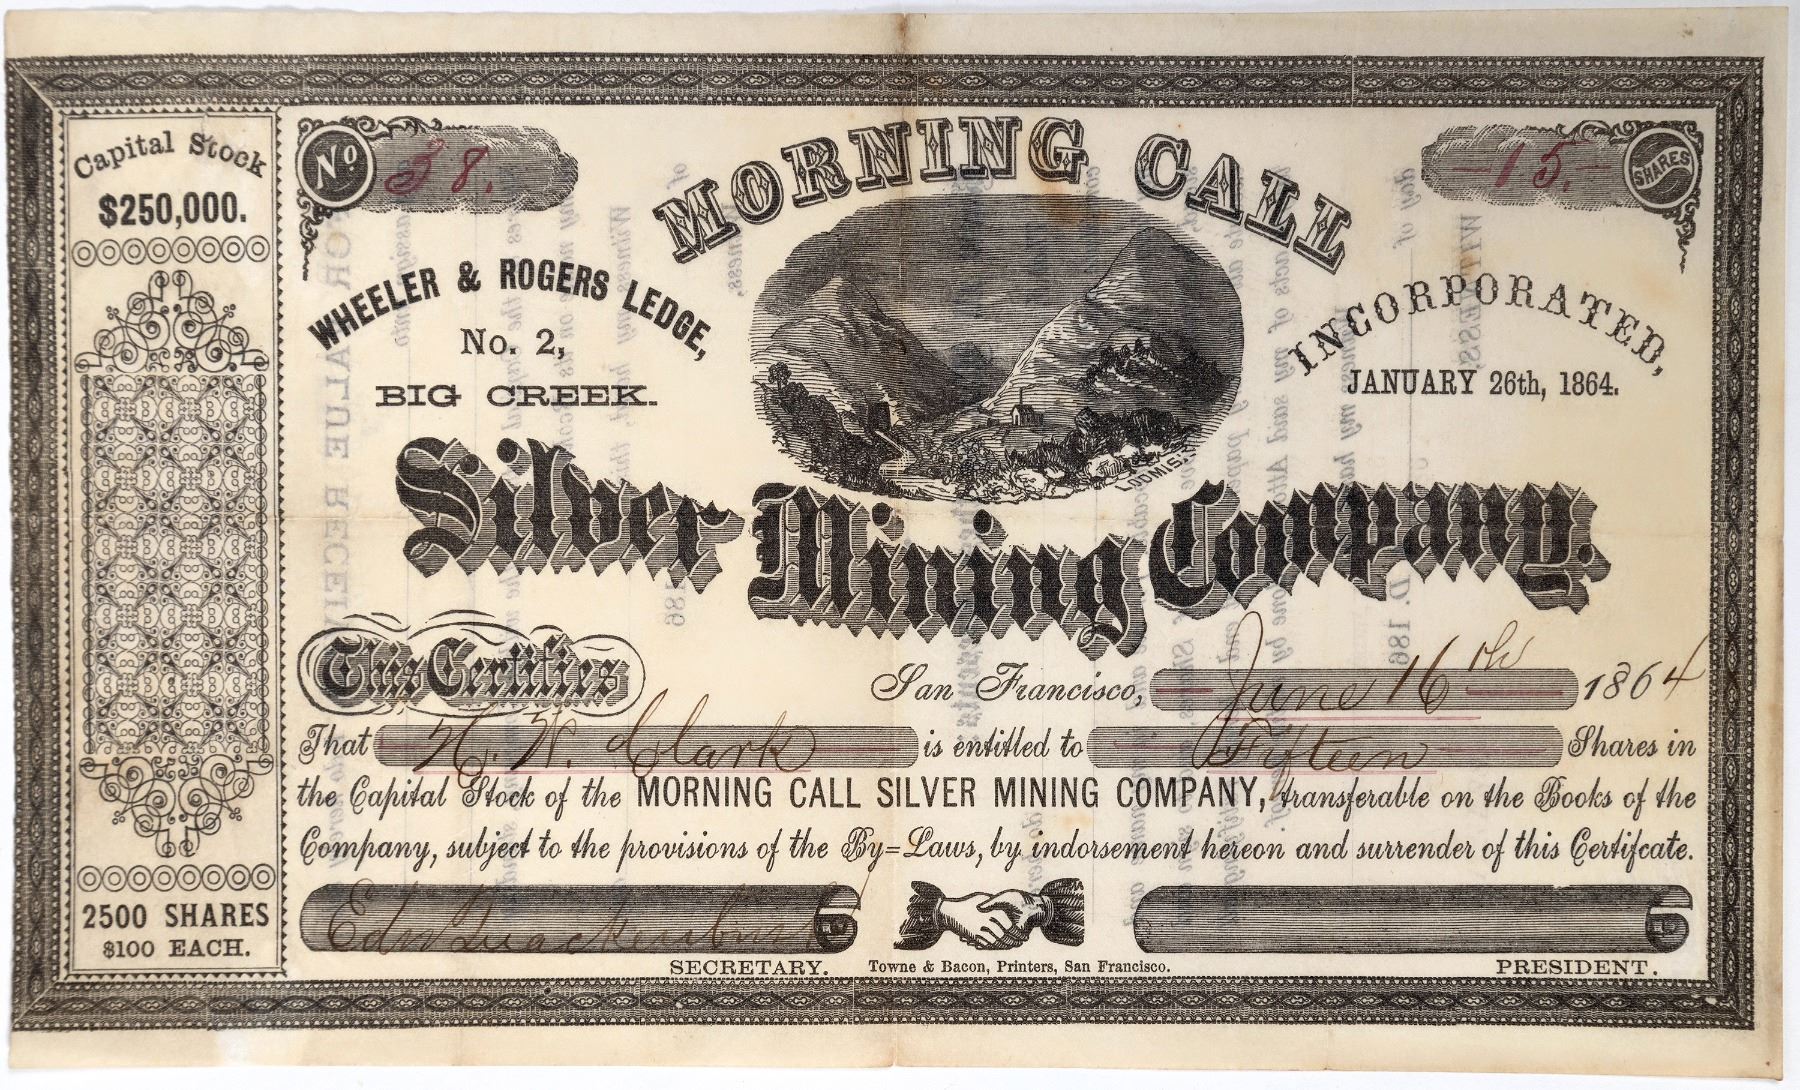 Capital Stock
$250,000.
2500 SHARES
$100 EACH.
No 38.
-15.- SHARES
MORNING CALL
WHEELER & ROGERS LEDGE,
No. 2,
BIG CREEK.
INCORPORATED,
JANUARY 26th, 1864.
LOOMIS
Silver Mining Company.
This Certifies
San Francisco, June 16th 1864
That H. W. Clark is entitled to Fifteen Shares in
the Capital Stock of the MORNING CALL SILVER MINING COMPANY, transferable on the Books of the
Company, subject to the provisions of the By=Laws, by indorsement hereon and surrender of this Certifcate.
Edw Quackenbush
SECRETARY.
Towne & Bacon, Printers, San Francisco.
PRESIDENT.